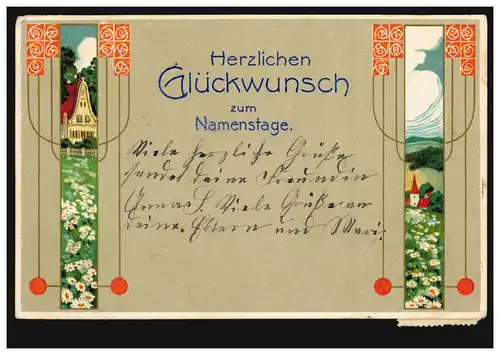 Herzlichen
Glückwunsch
zum
Namenstage.
Viele herzliche Grüße
sendet deine Freundin
Viele Grüße an
deine Eltern und Mari